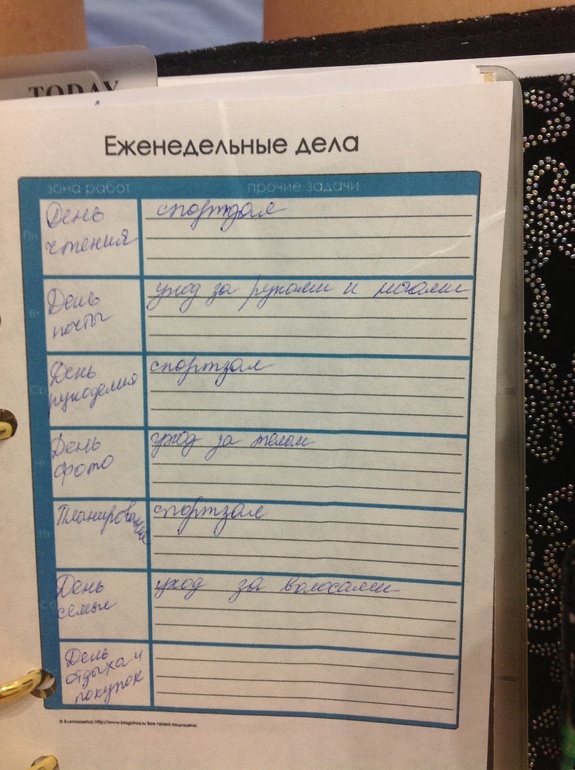 TODAY
Еженедельные дела
зона работ прочие задачи
Пн
День
чтения
спортзал
Вт
День
почты
уход за руками и ногами
Ср
День
рукоделия
спортзал
День
фото
уход за телом
Пт
Планирование
спортзал
Сб
День
семьи
уход за волосами
День
отдыха и
покупок